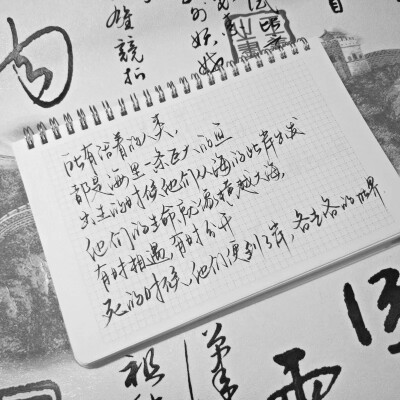 雄競折
外妖娆
所有活着的人类,
都是海里一条巨大的鱼
出生的时候他们从海的此岸出发
他们的生命就像横越大海,
有时相遇,有时分开
死的时候,他们便到了岸,各去各的世界
祖